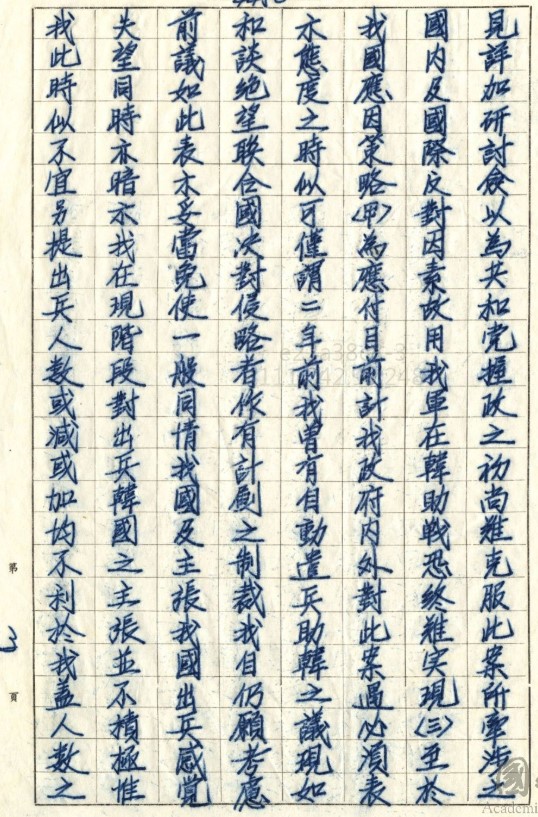 見詳加研討僉以為共和党握政之初尚难克服此案所牽涉之
國内及國際反對因素故用我軍在韓助戰恐終难实現〈三〉至於
我國應因策略〈甲〉為應付目前計我政府内外對此案遇必須表
示態度之時似可僅謂二年前我曾有自動遣兵助韓之議現如
和談絶望联合國决對侵略者作有計劃之制裁我自仍願考慮
前議如此表示妥當免使一般同情我國及主張我國出兵感覚
失望同時亦暗示我在現階段對出兵韓國之主張並不積極惟
我此時似不宜另提出兵人数或减或加均不利於我盖人数之
第
3
頁